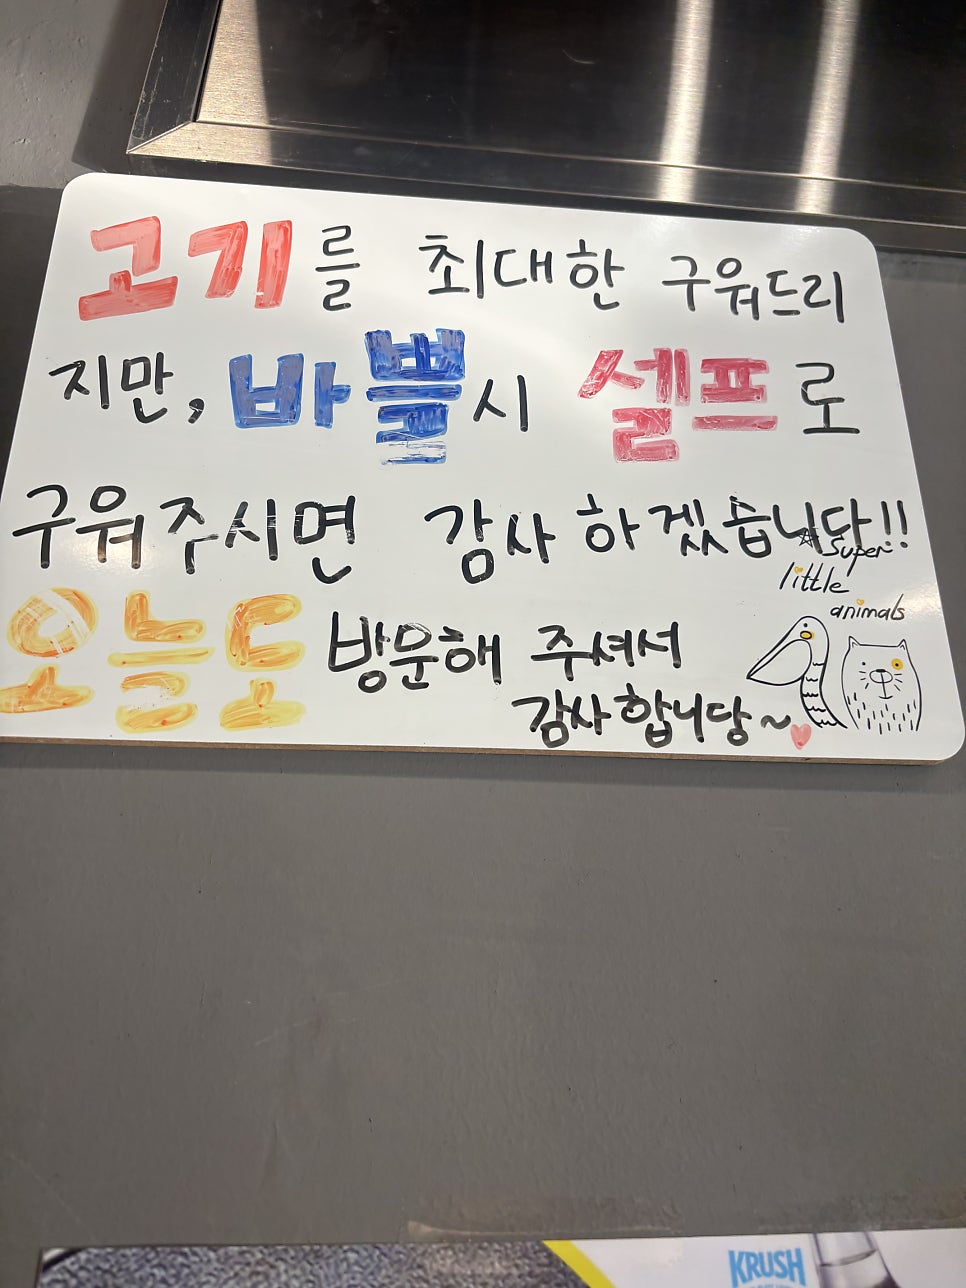 고기를 최대한 구워드리
지만, 바쁠시 셀프로
구워주시면 감사하겠습니다!!
☆Super
little
animals
오늘도 방문해 주셔서
감사합니당~♥
KRUSH